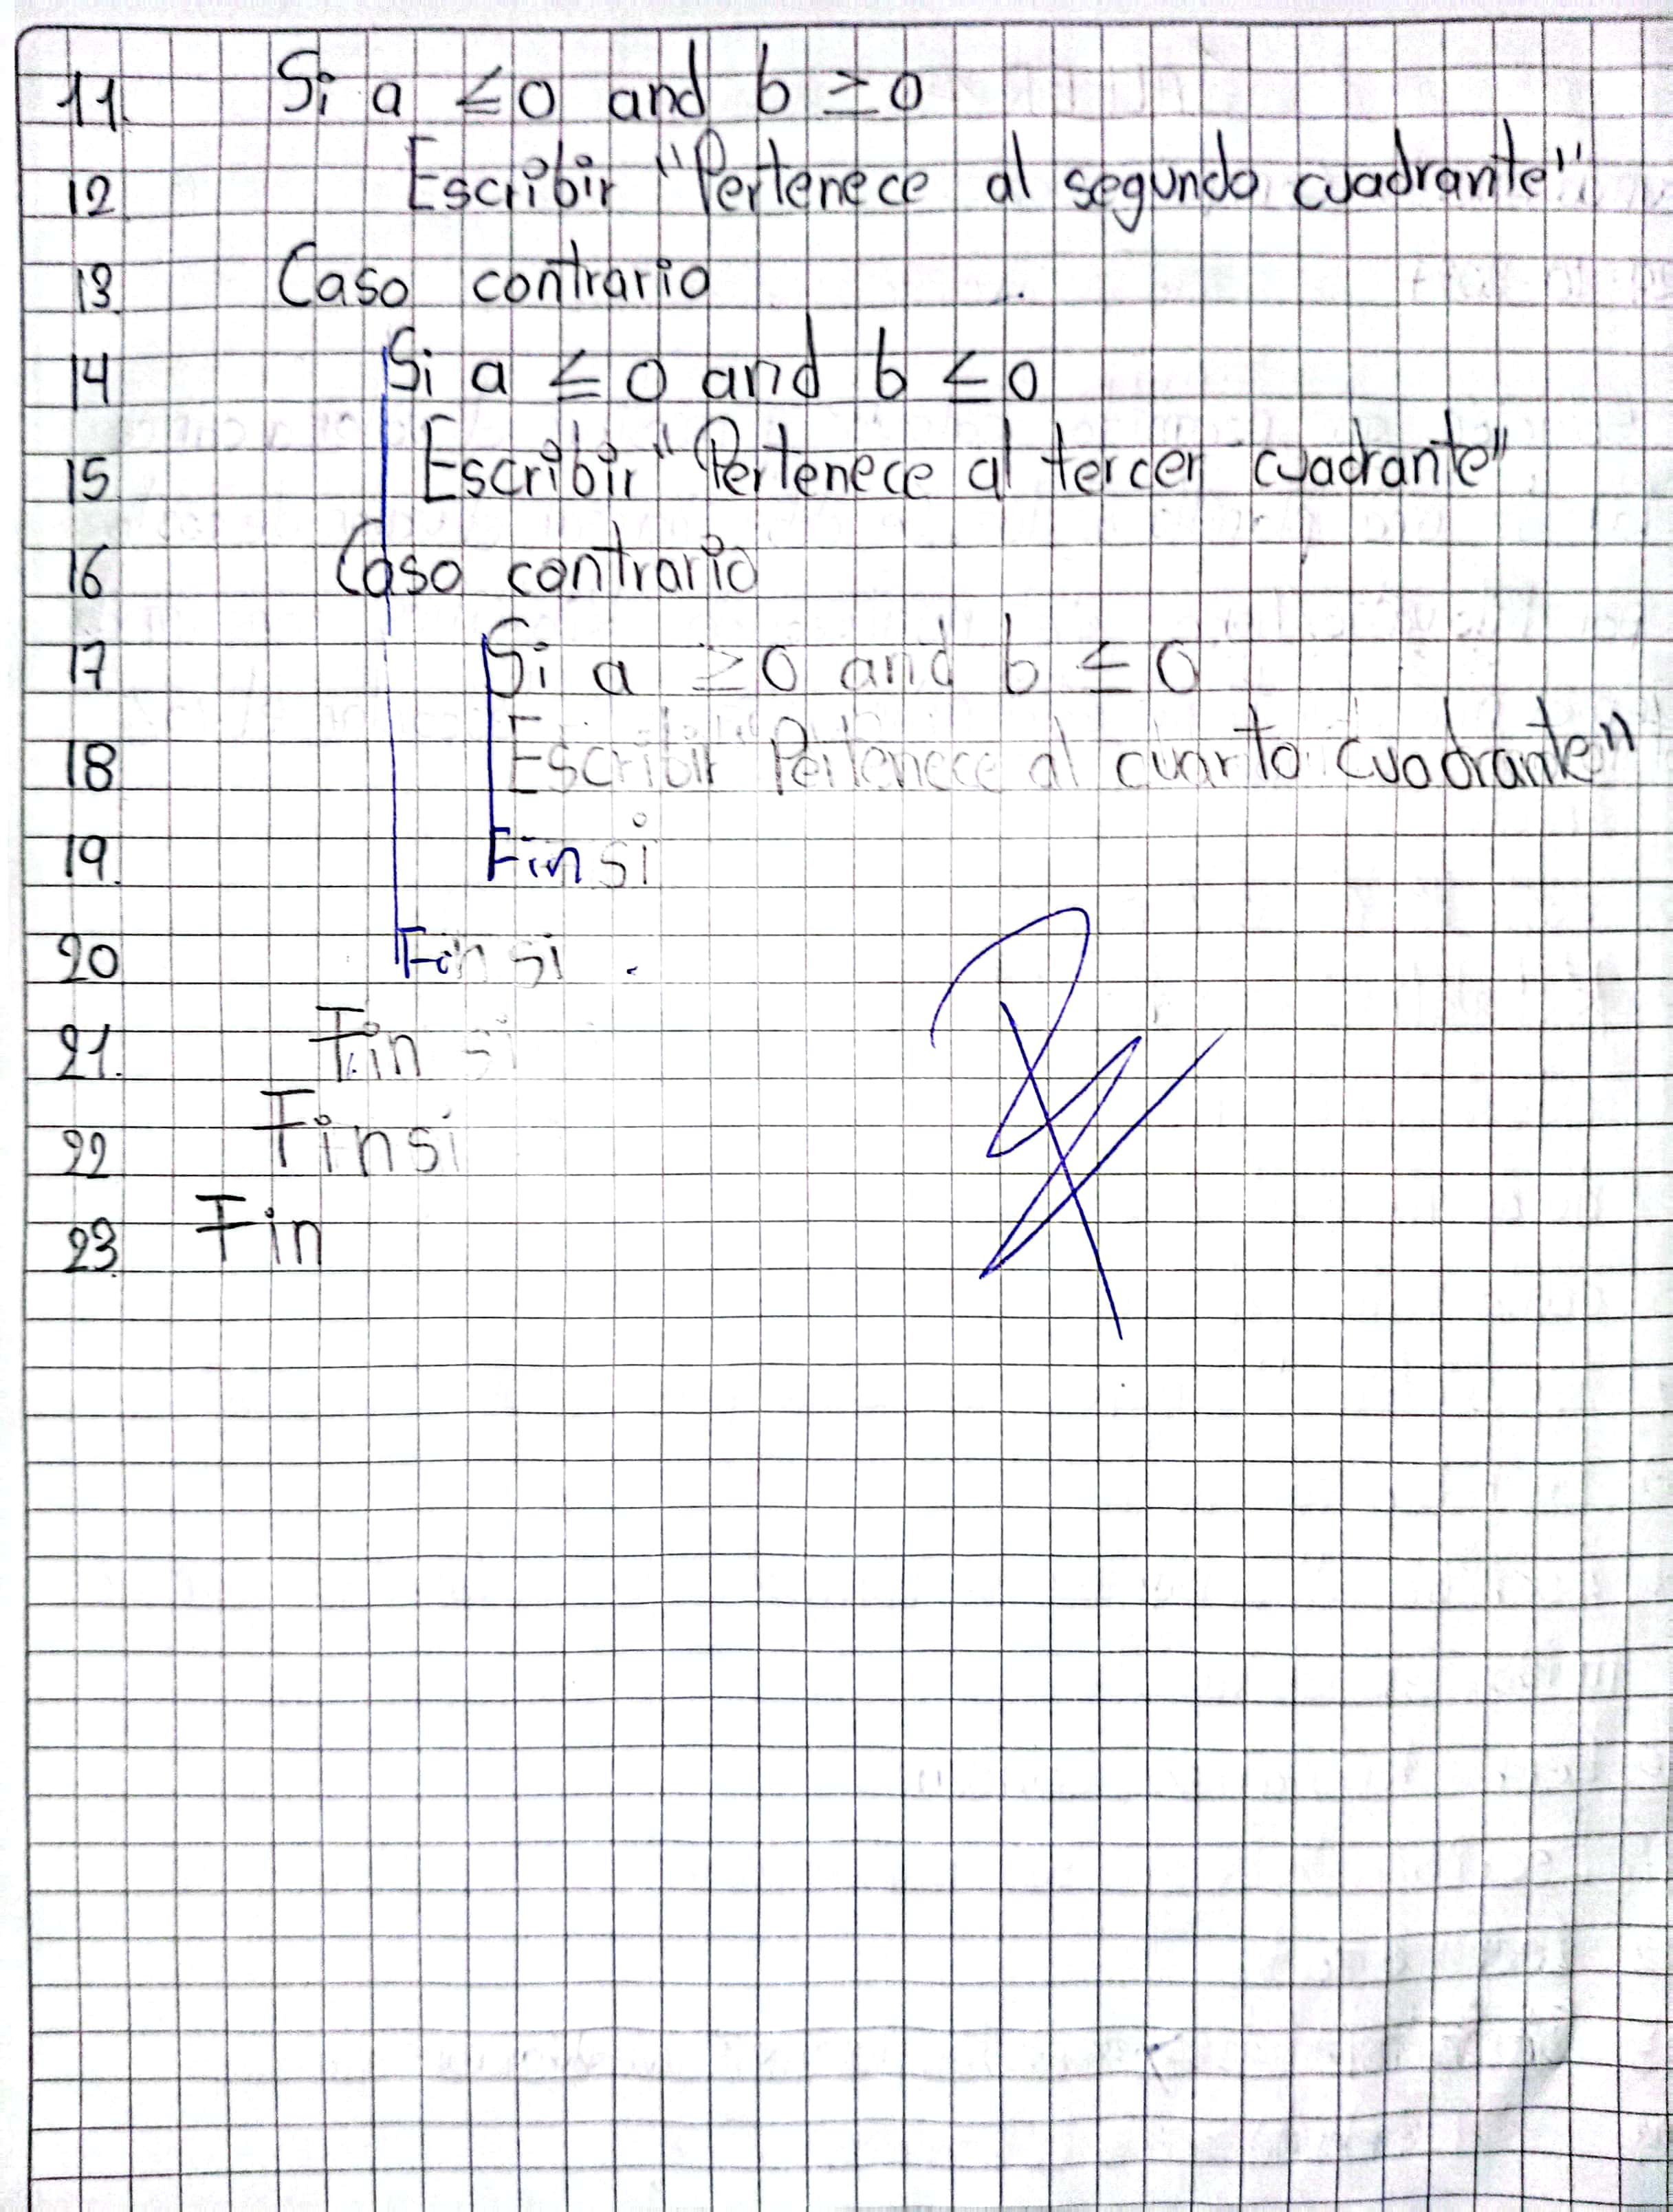 11. Si a ≤ 0 and b ≥ 0
12 Escribir "Pertenece al segundo cuadrante"
13 Caso contrario
14 Si a ≤ 0 and b ≤ 0
15 Escribir "Pertenece al tercer cuadrante"
16 Caso contrario
17 Si a ≥ 0 and b ≤ 0
18 Escribir "Pertenece al cuarto cuadrante"
19. Finsi
20 Fin si
21. Fin si
22 Finsi
23. Fin